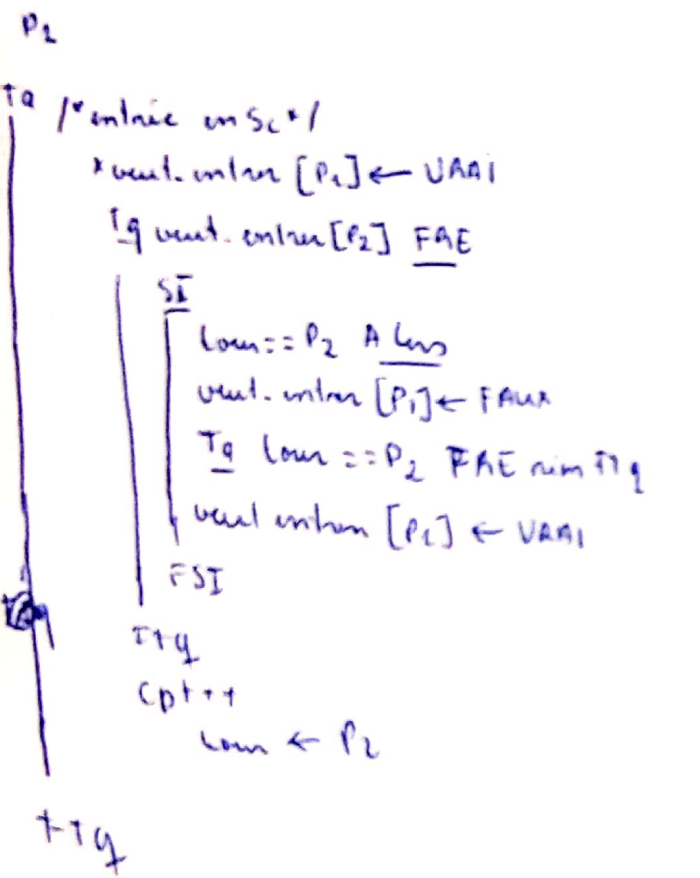 P2
Tq /* entrée en Sc */
* veut-entrer [P1] ← VRAI
Tq veut-entrer [P2] FAE
SI
tour == P2 Alors
veut-entrer [P1] ← FAUX
Tq tour == P2 FAE rien FTq
veut entrer [P1] ← VRAI
FSI
FTq
Cpt++
tour ← P2
FTq